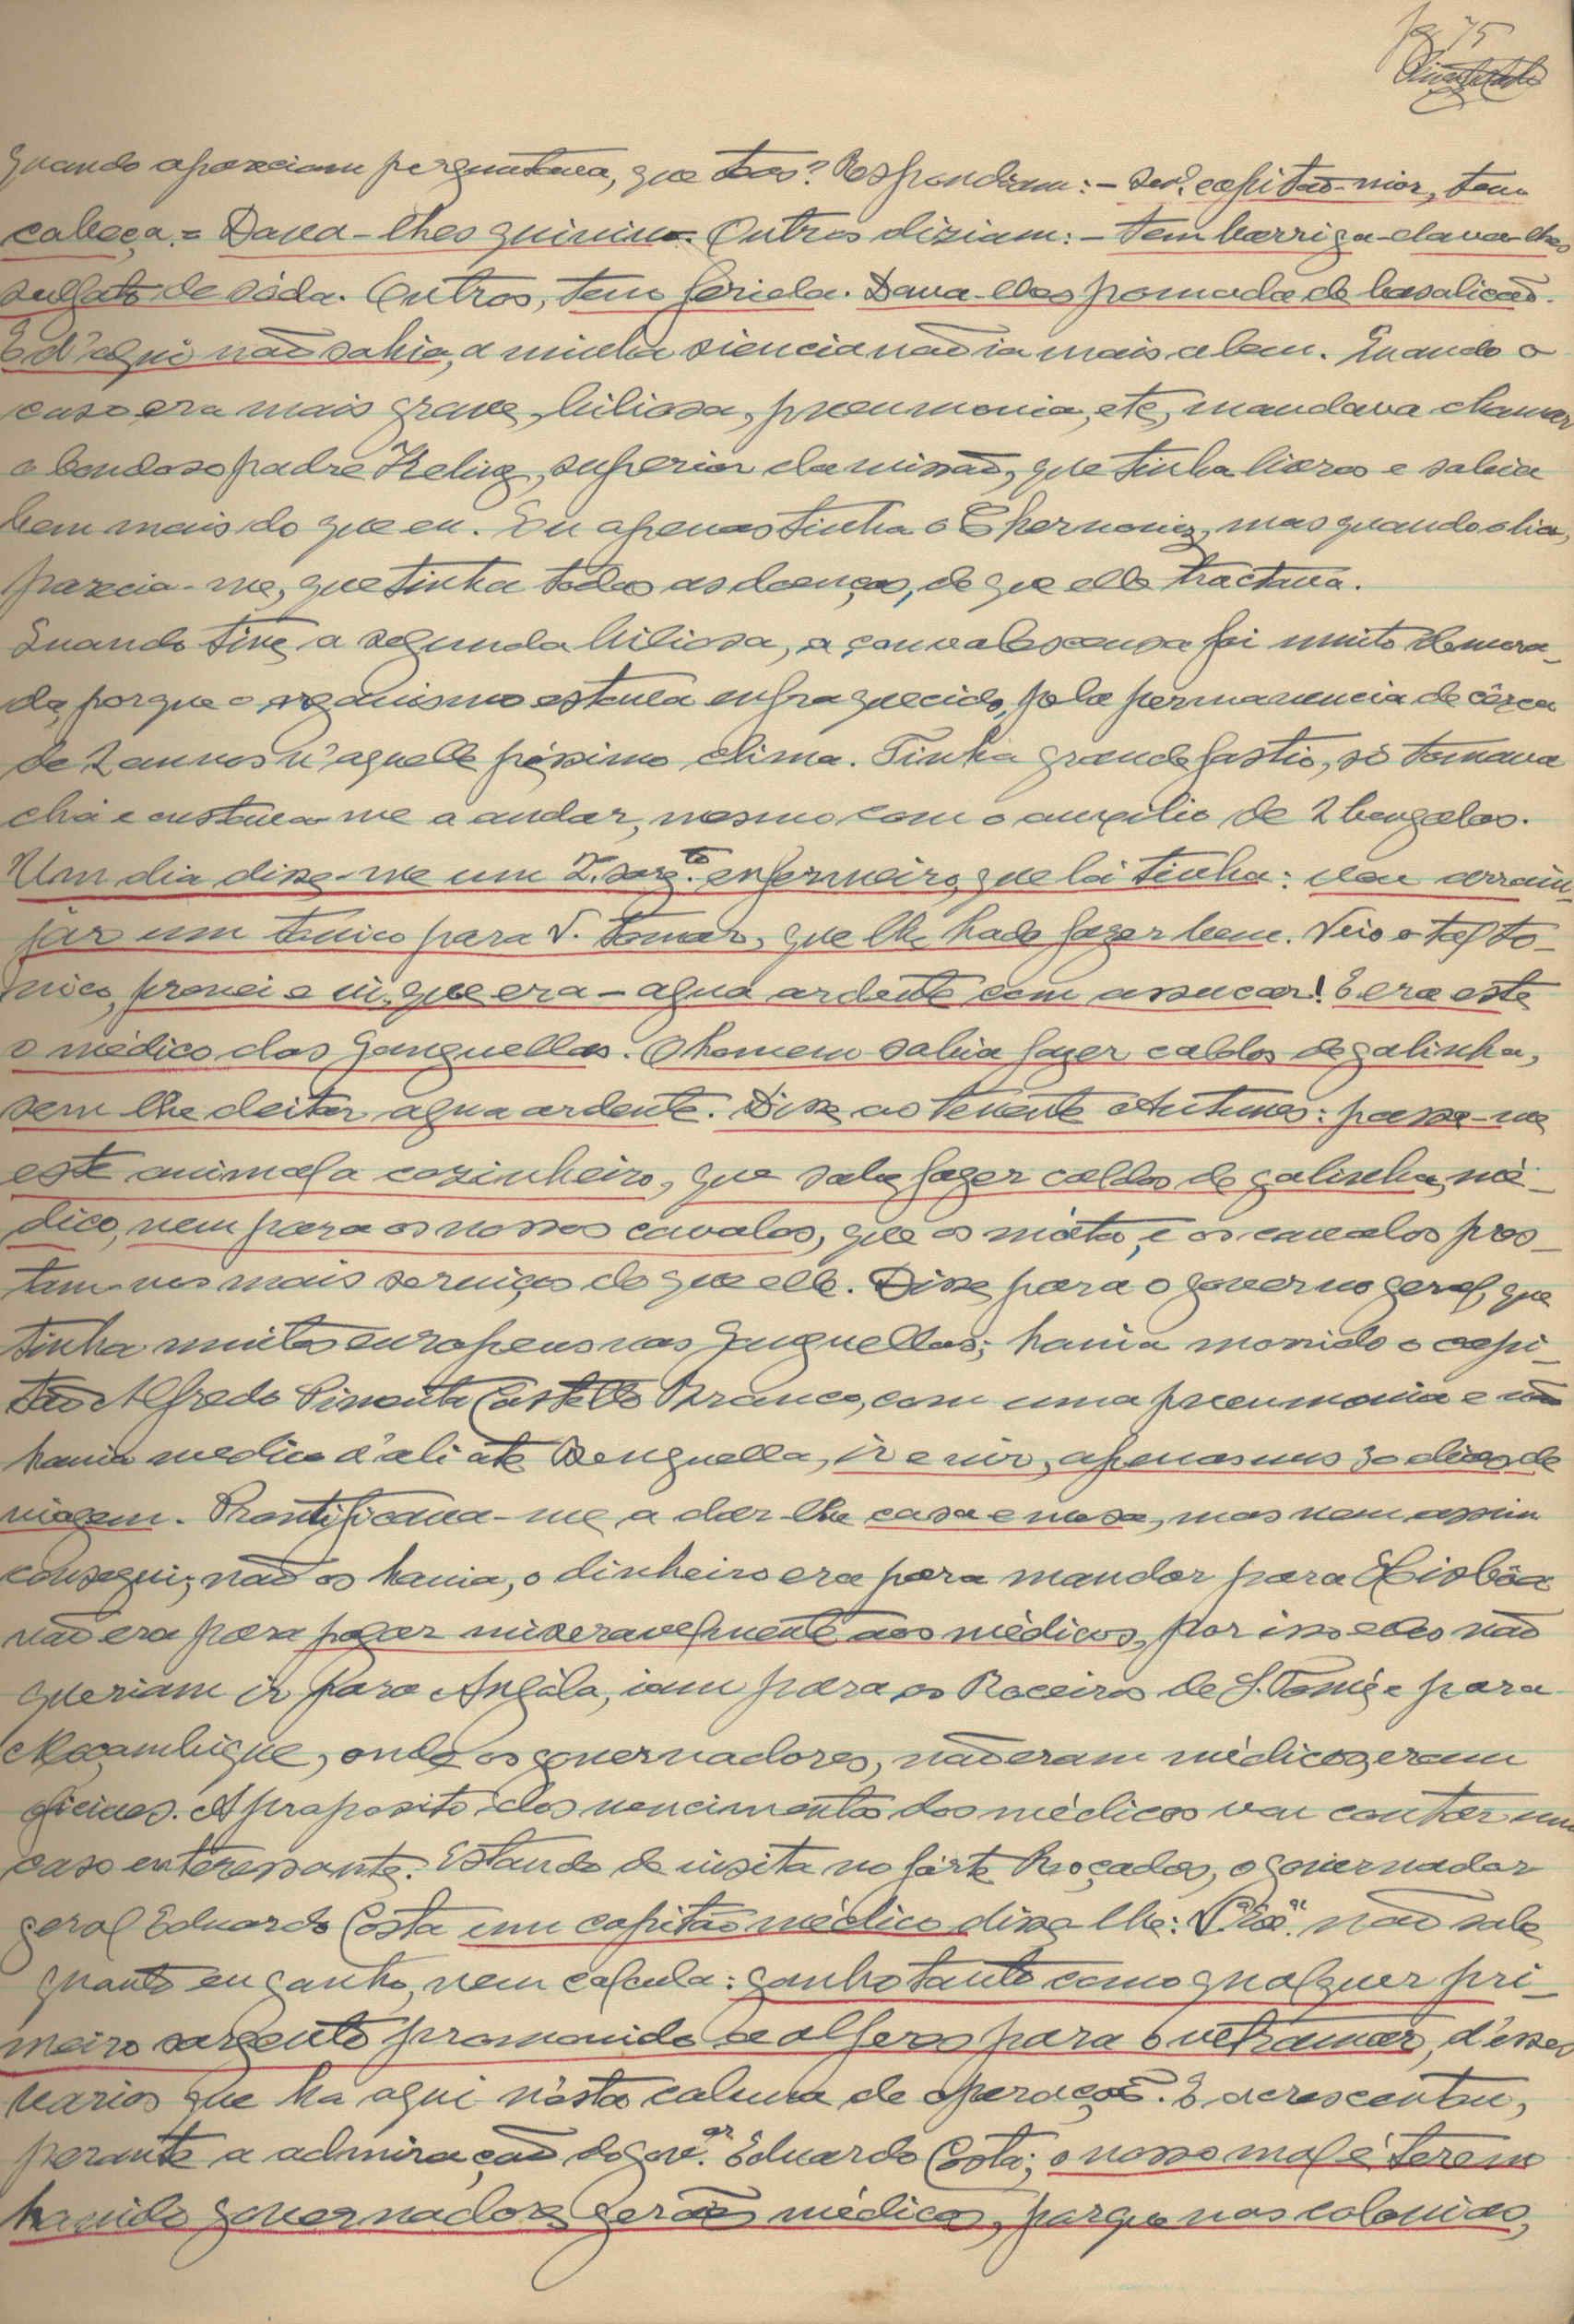 fg 75
Quando apareciam perguntava, que tens? Respondiam: - senr. capitão-mór, tem
cabeça. = Dava-lhes quinino. Outros diziam: - tem barriga - dava-lhes
sulfato de sóda. Outros, tem ferida. Dava-lhes pomada de basalicão.
E d'aqui não sahia, a minha siencia não ia mais alem. Quando o
caso era mais grave, biliosa, pneumonia, etc, mandava chamar
o bondoso padre Keling, superior da missão, que tinha livros e sabia
bem mais do que eu. Eu apenas tinha o Chernoviz, mas quando o lia,
parecia-me, que tinha todas as doenças, de que elle tractava.
Quando tive a segunda biliosa, a convalescensa foi muito demora-
da, porque o organismo estava enfraquecido, pela permanencia de cêrca
de 2 annos n'aquelle péssimo clima. Tinha grande fastio, só tomava
chá e custava-me a andar, mesmo com o auxilio de 2 bengalas.
Um dia disse-me um 2.º sarg.to enfermeiro, que lá tinha: vou arrain-
jar um tonico para V. tomar, que lhe hade fazer bem. Veio o tal to-
nico, provei e vi, que era - agua ardente com assucar! E era este
o médico dos Ganguellas. O homem sabia fazer caldos de galinha,
sem lhe deitar agua ardente. Disse ao tenente Antunes: passe-me
este animal a cozinheiro, que sabe fazer caldos de galinha, mé-
dico, nem para os nossos cavalos, que os máta, e os cavalos pres-
tam-nos mais serviços do que elle. Disse para o governo geral, que
tinha muitos europeus nas Ganguellas; havia morrido o capi-
tão Alfredo Pimenta Castello Branco, com uma pneumonia e não
havia medico d'ali até Benguella, ir e vir, apenas uns 30 dias de
viagem. Prontificava-me a dar-lhe casa e mesa, mas nem assim
consegui; não os havia, o dinheiro era para mandar para Lisbôa
não era para pagar miseravelmente aos médicos, por isso elles não
queriam ir para Angóla, iam para os Roceiros de S. Tomé e para
Moçambique, onde os governadores, não eram médicos, eram
oficiaes. A proposito dos vencimentos dos médicos vou contar um
caso enteressante. Estando de visita no fórte Roçadas, o governador
geral Eduardo Costa um capitão médico disse-lhe: V. Ex.ª não sabe
quanto eu ganho, nem calcula: ganho tanto como qualquer pri-
meiro sargento promovido a alferes para o ultramar, d'esses
varios que ha aqui n'esta coluna de operação. E acrescentou,
perante a admiração do gov.or Eduardo Costa; o nosso mal é terem
havido governadores geraes médicos, porque nas colonias,